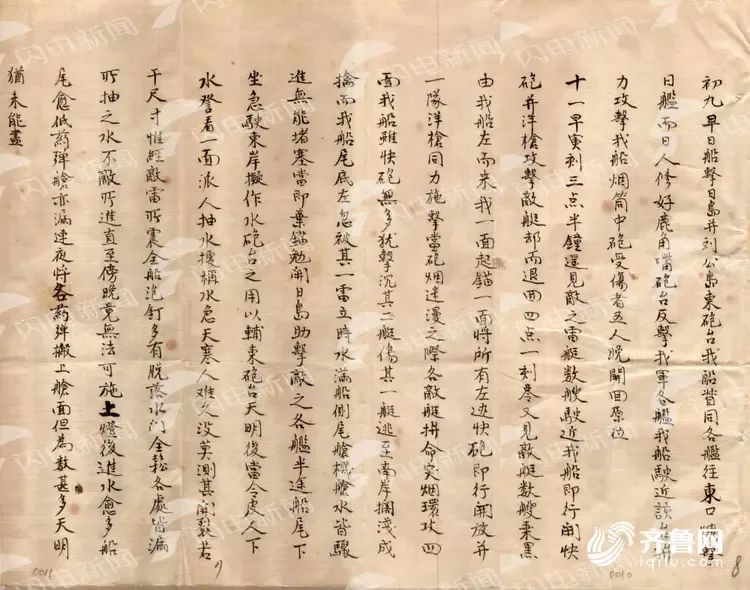 初九早日船擊日島并劉公島東砲台我船督同各艦往東口助擊
日艦而日人修好鹿角嘴砲台反擊我軍各艦我船駛近該台
力攻擊我船烟筒中砲受傷者五人晚開回原位
十一早寅刻三点半鐘還見敵之雷艇数艘駛近我船即行開快
砲并洋槍攻擊敵艇却而退回四点一刻零又見敵艇数艘乘黑
由我船左面来我一面起錨一面將所有左边快砲即行開放并
一隊洋槍同力施擊當砲烟迷漫之際各敵艇拼命突烟環攻四
面我船雖快砲無多犹擊沉其二艇傷其一艇逃至南岸擱淺成
擒而我船尾底左忽被其一雷立時水滿船側尾艙機艙水皆驟
進無能堵塞當即棄錨勉開日島助擊敵之各艦半途船尾下
坐急駛東岸擬作水砲台之用以輔東砲台天明後當令皮人下
水登看一面派人抽水據稱水急天寒人难久没莫測其開裂若
干尺寸惟經敵雷所震全船泡釘多有脱落水门全鬆各處皆漏
所抽之水不敵所進直至傍晚竟無法可施上燈後進水愈多船
尾愈低葯彈艙亦漏連夜將各葯弹搬上艙面但為数甚多天明
猶未能盡
8
0010
9
0011
闪电新闻
齐鲁网
iqilu.com